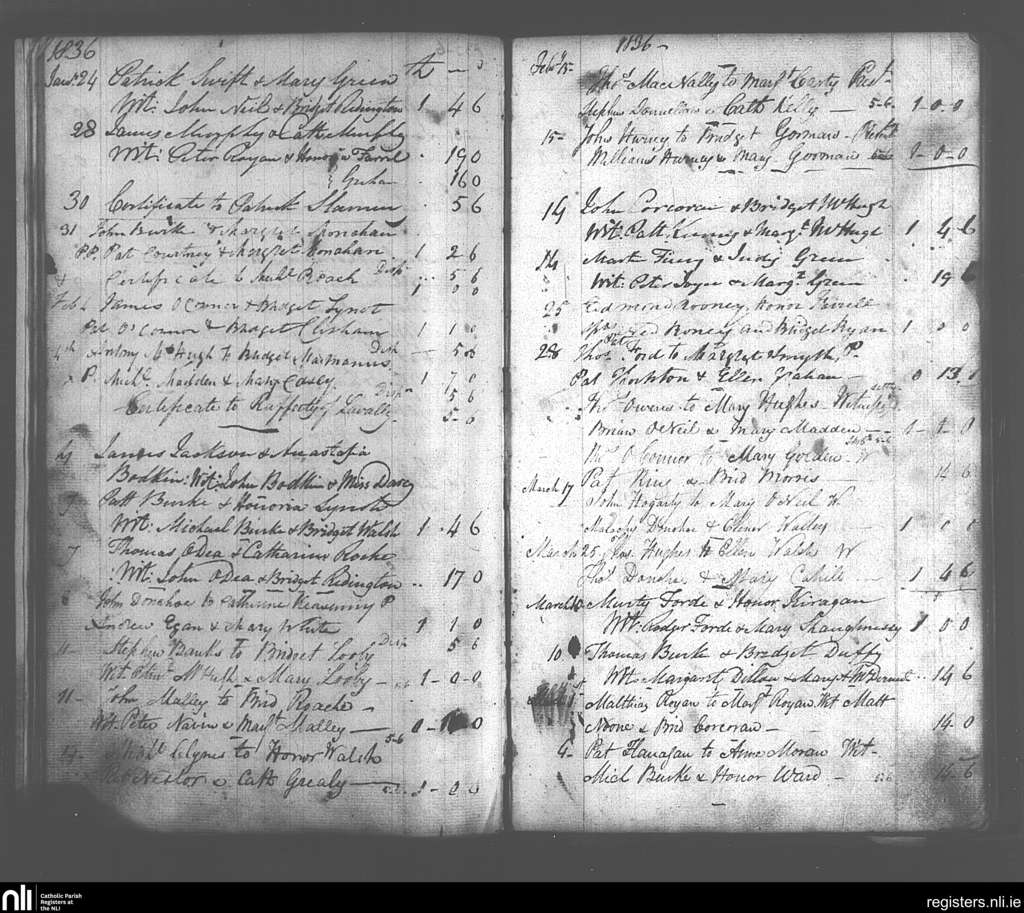 1836
Jany 24 Patrick Swift & Mary Green
Wt: John Neil & Bridget Ridington 1 4 6
28 James Murphy & Cath Murphy
Wt: Peter Royan & Honor Farril . 19 0
. 16 0
30 Certificate to Patrick Slamin . 5 6
31 John Burke & Margret Monahan
P.P. Pat Courtney & Margret Monahan 1 2 6
Certificate to Michl Roach Disp 5 6
1 0 0
Feb James O Connor & Bridget Lynot
Pat O'Connor & Bridget Clisham 1 1 0
4th Antony McHugh to Bridget Macmanus Dis 5 0
P. Michl Madden & Mary Casey 1 7 0
Disp 5 6
Certificate to Rafferty Lavally 5-0
4 James Jackson & Anastatia
Bodkin: Wt: John Bodkin & Miss Darcy
7 Patt Burke & Honoria Lynott
Wt: Michael Burke & Bridget Walsh 1 . 4 6
7 Thomas O Dea & Catharine Roche
Wt: John O Dea & Bridget Ridington .. 17 0
John Donohoe to Catherine Keaveeny P
Andrew Egan & Mary White 1 1 0
11- Stephen Banks to Bridget Looby Dis 5 6
Wt Peter McHugh & Mary Looby - 1-0-0
11- John Malley to Brid Roache -
Wt Peter Navin & Mary Malley - 0 - 0
5-6
14- Glynes to Honor Walsh
Neilor & Cath Grealy - 1-0 0
1836-
Feby 15- Thos MacNalley to Margt Carty Prest
Stephen Donnellan & Cath Kelly - 5-6 1-0-0
15- John Hurney to Bridget Gorman -
William Hurney & Mary Gorman 1-0-0
14 John Corcoran & Bridget McHugh
Wt. Patt & Margt McHugh 1 4 6
14 Mark Finy & Judy Green
Wt: Peter Joyce & Margt Green . 19 6
25 Edmond Rooney, Honor Farrell
Roney and Bridget Ryan 1 0 0
28 Thos Ford to Margret Smyth, P.
Pat Thornton & Ellen Fahan - 0 13.1
Thos Owens to Mary Hughes Witness
Brian O Neil & Mary Madden - 1-1-0
O Connor to Mary Golden W
Pat King & Brid Morris - 14 6
March 17 John Hogarty to Mary O Neil W
Malachy & Elener Walley 1 0 0
March 25 Hughes to Ellen Walsh W
Thos Donohoe & Mary Cahill - 1 4 6
March Murty Forde & Honor Kiragan
Wt: Rodger Forde & Mary Shaughnessy 1 0 0
10 Thomas Burke & Bredget Duffy
Wt. Margaret Dillon & Mary McDermot .. 14 6
Matthias Royan to Margt Royan Wt Matt
Noone & Brid Corcoran - 14.0
4- Pat Flanagan to Anne Moran Wit-
Mick Burke & Honor Ward - 5:6 15-6
nli
Catholic Parish
Registers at
the NLI
registers.nli.ie